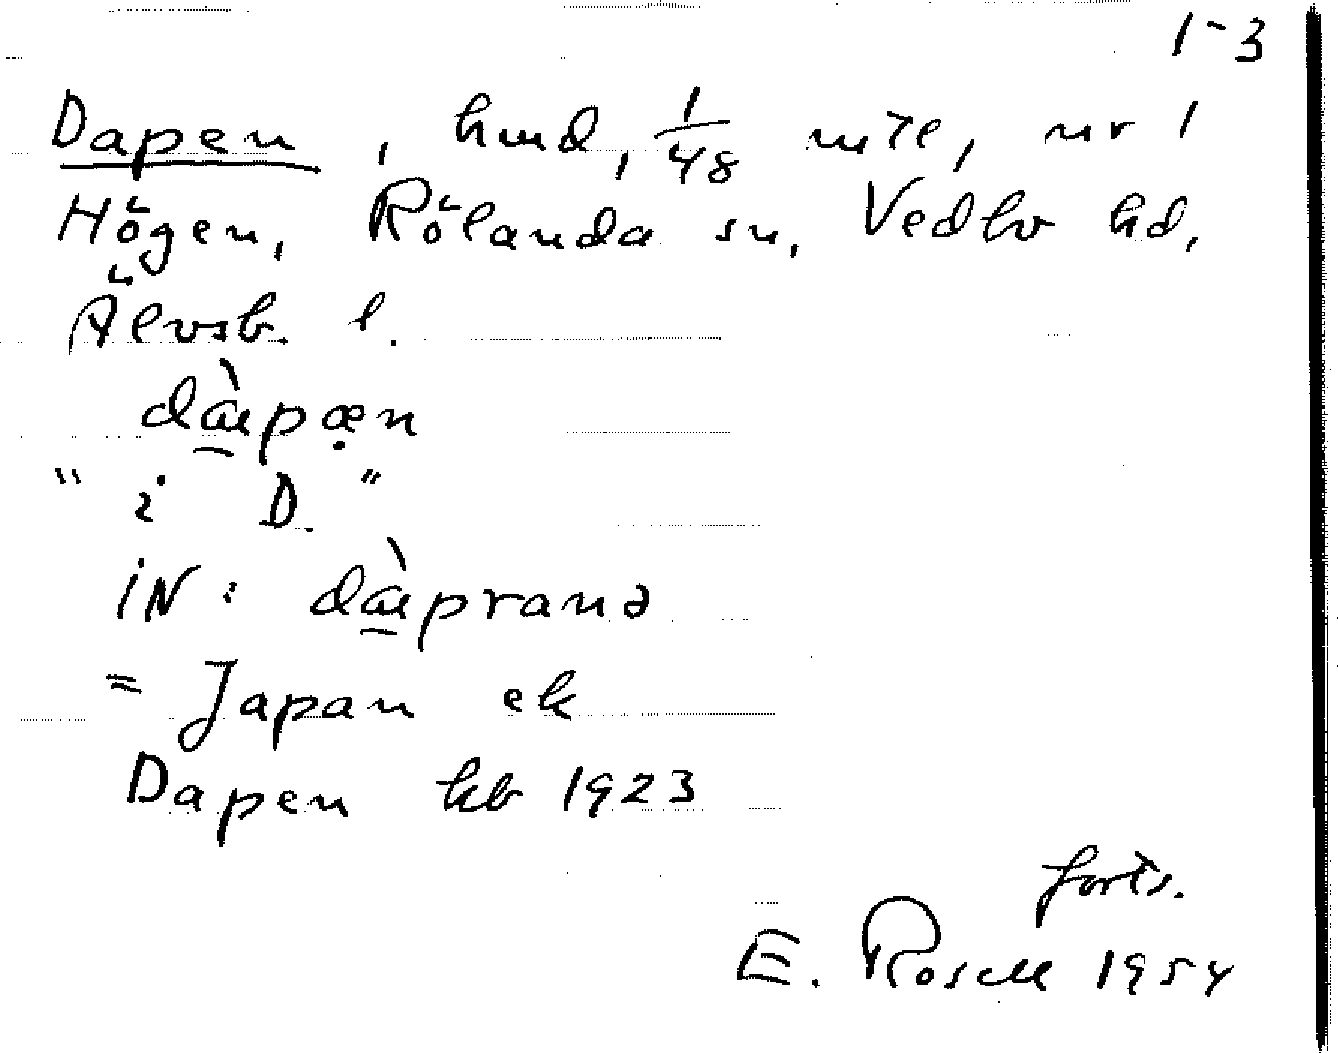 1-3
Dapen, hmd, 1/48 mtl, nr 1
Högen, Rölanda sn, Vedbo hd,
Älvsb. l.
dàpæ̣n
"i D."
iN: dàpranə
= Japan ek
Dapen kb 1923
forts.
E. Rosell 1954